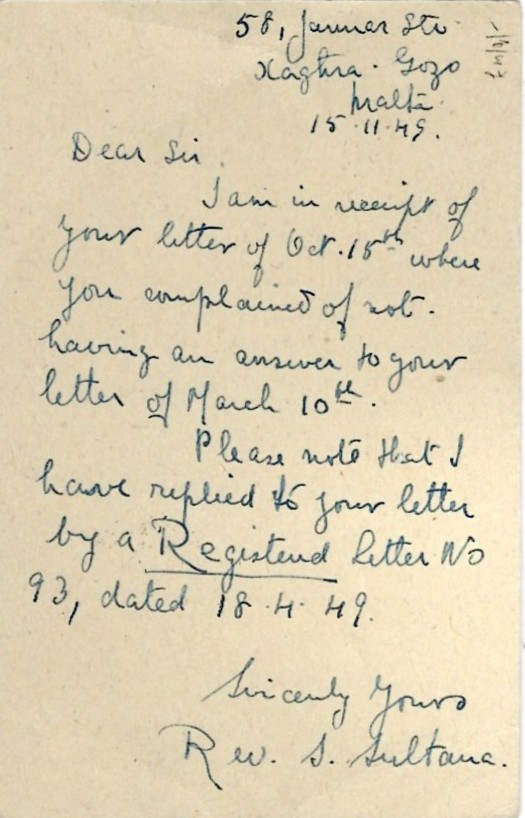 58, Jannar Str.
Xaghra. Gozo
Malta.
15.11.49.
Dear Sir.
I am in receipt of
your letter of Oct. 15th where
you complained of not.
having an answer to your
letter of March 10th.
Please note that I
have replied to your letter
by a Registerd Letter No
93, dated 18.4.49.
Sincerly Yours
Rev. S. Sultana.